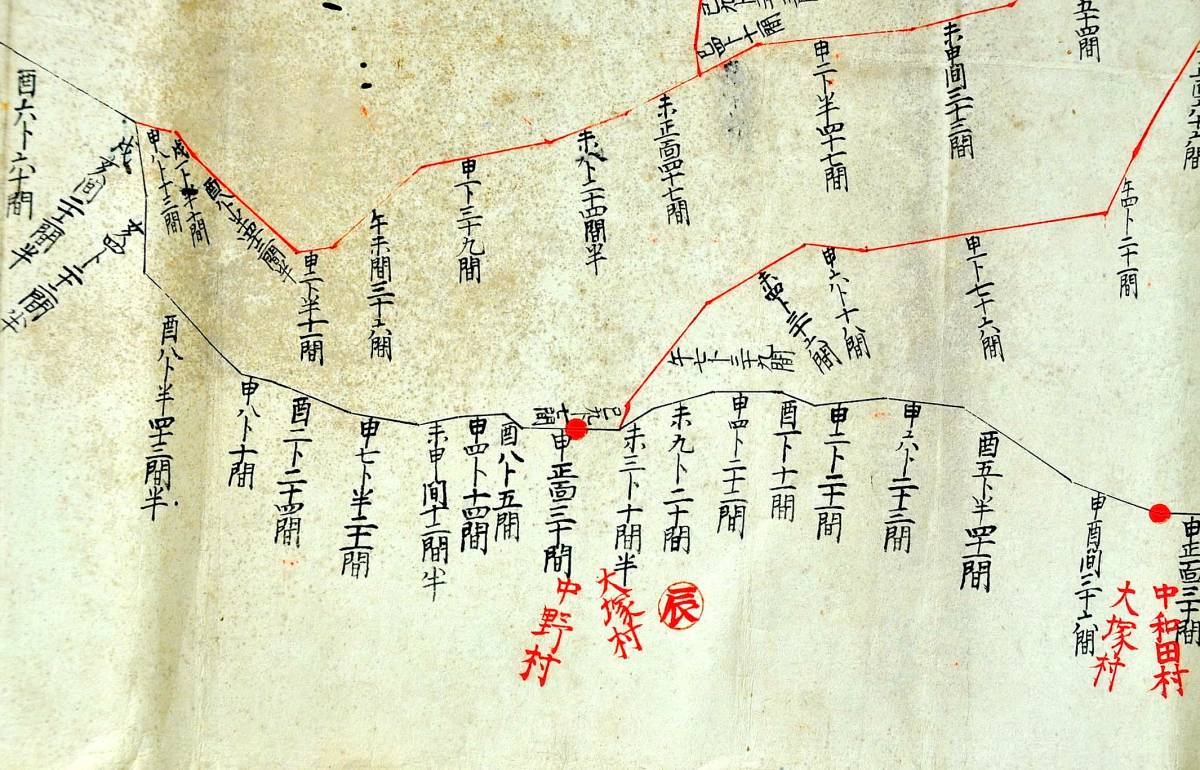 五十四間
未申間三十三間
申二ト半四十七間
未正面四十七間
未八ト二十四間半
申一ト三十九間
午未間三十六間
申二ト半十二間
申八ト十三間
酉六ト六十間
午四ト二十二間
申一ト七十六間
申六ト十八間
午七ト三十九間
巳九ト七間
申正面三十間
申酉間三十六間
酉五ト半四十二間
申六ト二十三間
申二ト二十二間
酉一ト十一間
申四ト二十三間
未九ト二十間
未三ト十間半
申正面三十間
酉八ト五間
申四ト十四間
未申間十二間半
申七ト半二十二間
酉二ト二十四間
申八ト十間
酉八ト半四十三間半
亥四ト二十二間半
戌亥間二十三間半
中和田村
大塚村
辰
大塚村
中野村